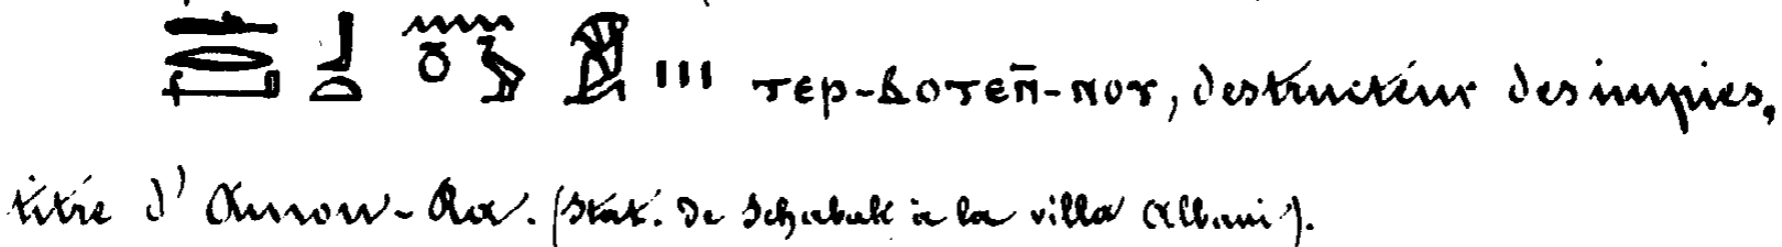 ⲧⲉⲣ-ⲃⲟⲧⲉⲛ̄-ⲛⲟⲩ, destructeur des impies,
titre d'Amon-Ra. (Stat. de Schabak à la villa Albani).